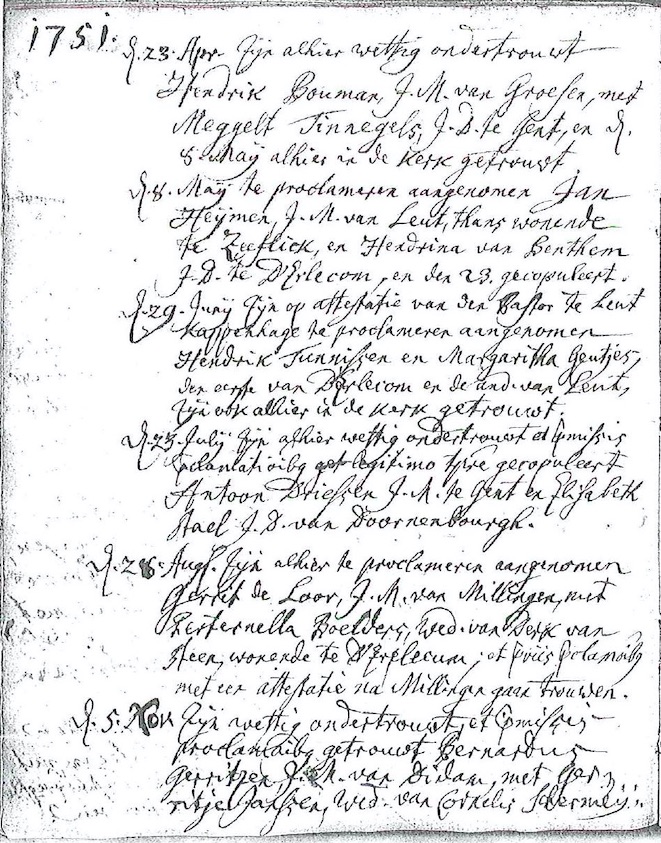 1751.
d. 23. Apr. Zijn alhier wettig ondertrouwt
Hendrik Bouman, J.M. van Groesen, met
Meggelt Tinnegels, J.D. te Gent, en d.
8. Maij alhier in de kerk getrouwt
d. 8. Maij te proclameren aangenomen Jan
Heijmen, J.M. van Leut, thans wonende
te Zeeflick, en Hendrina van Benthem
J.D. te D'Erlecom, en den 23. gecopuleert.
d. 29. Junij Zijn op attestatie van den Pastor te Leut
Kappenhage te proclameren aangenomen
Hendrik Tunnissen en Margaritha Gentjes,
den eerste van D'Erlecom en de and. van Leut,
Zijn ook alhier in de kerk getrouwt.
d. 23. Julij Zijn alhier wettig ondertrouwt et
legitimo tpre gecopuleert
Antoon Driessen J.M. te Gent en Elisabeth
Stael J.D. van Doornenbourgh.
d. 28. Augt. Zijn alhier te proclameren aangenomen
Gerrit de Loor, J.M. van Millingen, met
Peternella Boelders, Wed. van Derk van
Steen, wonende te D'Erlecum, et
met een attestatie na Millingen gaan trouwen.
d. 5. Nov. Zijn wettig ondertrouwt, et
getrouwt Bernardus
Gerritzen J.M. van Didam, met Ger-
ritje Janssen, Wed. van Cornelis